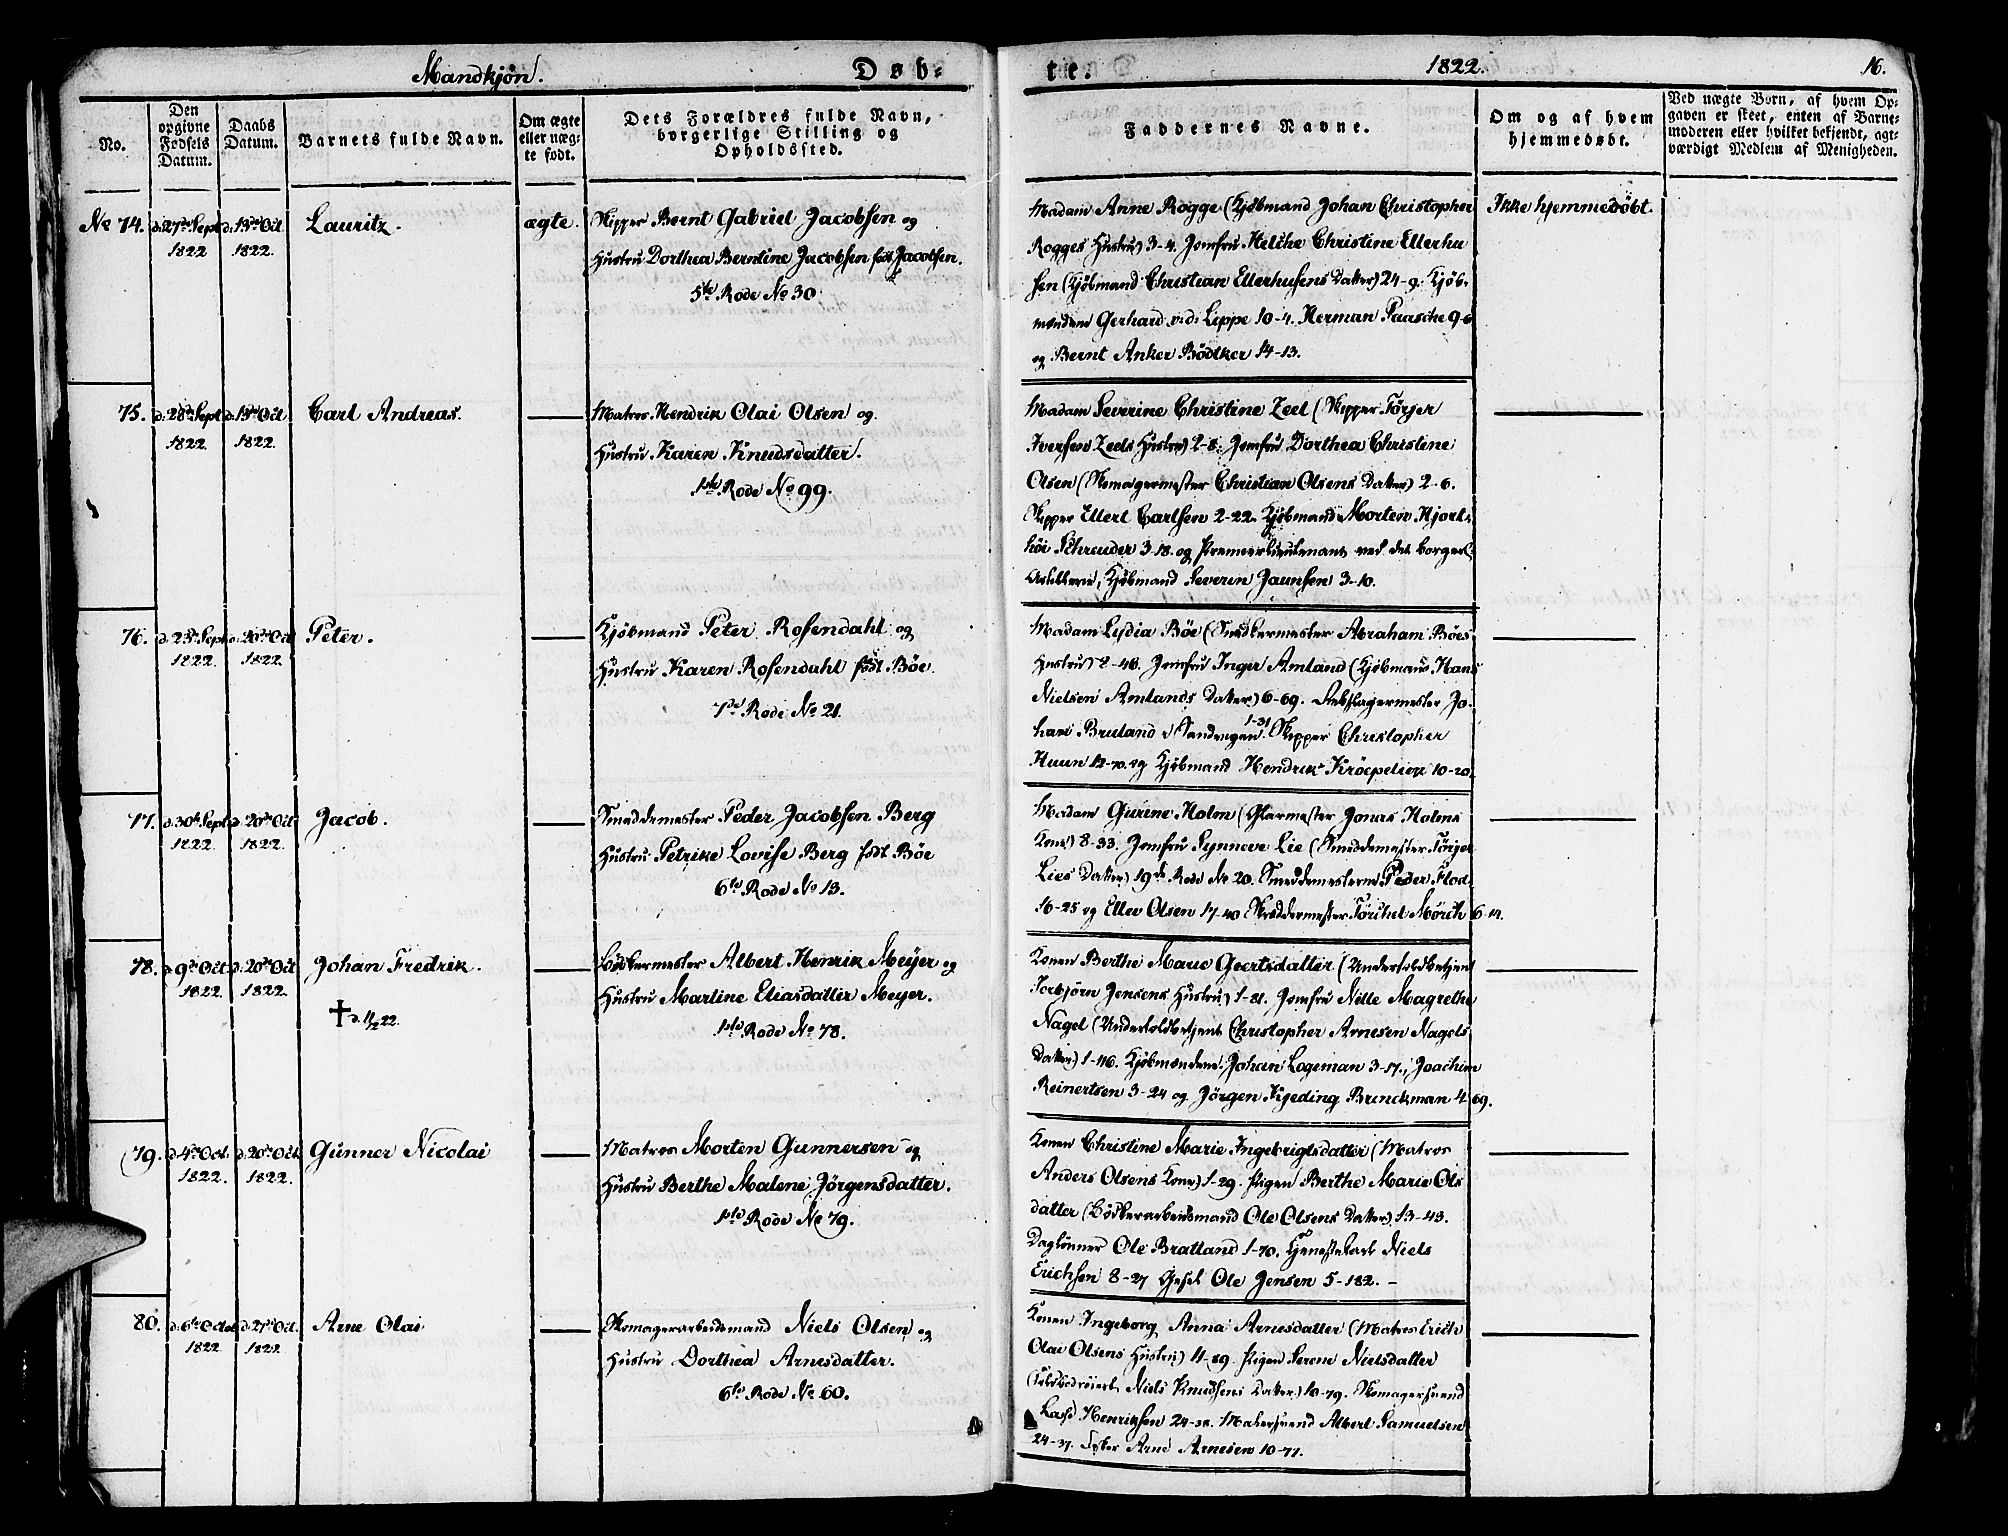 Mandkjøn.
Døb-
te.
1822.
16.
No.
Den opgivne Fødsels Datum.
Daabs Datum.
Barnets fulde Navn.
Om ægte eller næg-te født.
Dets Forældres fulde Navn,
borgerlige Stilling og
Opholdssted.
Faddernes Navne.
Om og af hvem
hjemmedøbt.
Ved nægte Børn, af hvem Op-
gaven er skeet, enten af Barne-
moderen eller hvilket bekjendt, agt-
værdigt Medlem af Menigheden.
No 74. d: 27de Sept d: 13de Oct Lauritz. ægte. Skipper Bernt Gabriel Jacobsen og
1822 1822. Hustru Dorthea Berntine Jacobsen født Jacobsen.
5te Rode No 30
Madam Anne Rogge (Kjøbmand Johan Christopher
Rogges Hustru) 3-4. Jomfru Helche Christine Ellerhu
sen (Kjøbmand Christian Ellerhusens Datter) 24-9. Kjøb-
mændene Gerhard v:d: Lippe 10-4. Herman Paasche 9-6
og Bernt Anker Bödtker 14-13.
Ikke hjemmedøbt.
75. d: 28de Sept d: 13de Oct Carl Andreas. Matros Hendrik Olai Olsen og
1822 1822. Hustru Karen Knudsdatter.
1ste Rode No 99.
Madam Severine Christine Zeel (Skipper Törjer
Iversen Zeels Hustru) 2-8. Jomfru Dorthea Christine
Olsen (Skomagermester Christian Olsens Datter) 2-6.
Skipper Ellert Carlsen 2-22. Kjøbmand Morten Hjort-
höi Schreuder 3-18. og Premierlieutenant ved det borgerl.
Artillerie, Kjøbmand Severin Jaunsen 3-10.
76. d: 23de Sept d: 20de Oct Peter. Kjöbmand Peter Rosendahl og
1822. 1822. Hustru Karen Rosendahl født Böe.
7de Rode No 21.
Madam Lydia Böe (Snedkermester Abraham Böes
Hustru) 8-48. Jomfru Inger Amland (Kjöbmand Hans
Nielsen Amlands Datter) 6-69. Rebslagermester Jo-
han Bruland i Sandvigen 1-31. Skipper Christopher
Huun 12-70. og Kjöbmand Hendrik Kröepelien 10-20.
77. d: 30te Sept d: 20de Oct Jacob. Smeddemester Peder Jacobsen Berg
1822. 1822. Hustru Petrike Lovise Berg født Böe
6te Rode No 13.
Madam Gurine Holm (Glarmester Jonas Holms
Kone) 8-33. Jomfru Synneve Lie (Smeddemester Törjer
Lies Datter) 19de Rode No 20. Smeddemesterne Peder Flod
16-25 og Ellev Olsen 17-40 Skræddermester Törchel Mörch 6-14.
78. d: 9de Oct d: 20de Oct Johan Fredrik. Bødkermester Albert Henrik Meyer og
1822. 1822. Hustru Martine Eliasdatter Meyer.
† d. 11/2 22. 1ste Rode No 78.
Konen Berthe Marie Geertsdatter (Undertoldbetjent
Torbjörn Jensens Hustru) 1-81. Jomfru Nille Magrethe
Nagel (Undertoldbetjent Christopher Arnesen Nagels
Datter) 1-116. Kjöbmændene Johan Logeman 3-17., Joachim
Reinertsen 3-24 og Jörgen Kjeding Brinckman 4-69.
79. d: 4de Oct. d: 20de Oct. Gunner Nicolai Matros Morten Gunnersen og
1822. 1822. Hustru Berthe Malene Jörgensdatter.
1ste Rode No 79.
Konen Christine Marie Ingebrigtsdatter (Matros
Anders Olsens Kone) 1-29. Pigen Berthe Marie Ols
datter (Bödkerarbeidsmand Ole Olsens Datter) 13-43.
Daglönner Ole Bratland 1-70. Tjenestekarl Niels
Erichsen 8-27 Gesel Ole Jensen 5-182. –
80. d: 6te Octob d: 27de Oct. Arne Olai Skomagerarbeidsmand Niels Olsen og
1822 1822. Hustru Dorthea Arnesdatter.
6te Rode No 60.
Konen Ingeborg Anna Arnesdatter (Matros Erich
Olai Olsens Hustru) 11-89. Pigen Serene Nielsdatter
Niels Knudsens Datter) 10-79. Skomagersvend
Lasse Henriksen 24-38. Malersvend Albert Samuelsen
24-37. Arne Arnesen 10-77.